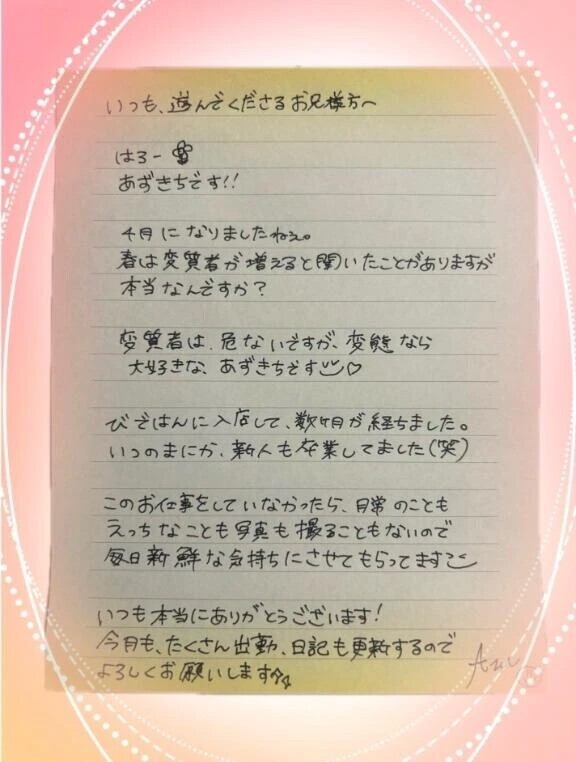 いつも、遊んでくださるお兄様方へ
はろー
あずきちです!!
4月になりましたねぇ。
春は変質者が増えると聞いたことがありますが
本当なんですか？
変質者は、危ないですが、変態なら
大好きな、あずきちです♡
びごはんに入店して、数ヶ月が経ちました。
いつのまにか、新人も卒業してました(笑)
このお仕事をしていなかったら、日常のことも
えっちなことも写真も撮ることもないので
毎日新鮮な気持ちにさせてもらってます
いつも本当にありがとうございます!
今月も、たくさん出勤、日記も更新するので
よろしくお願いします